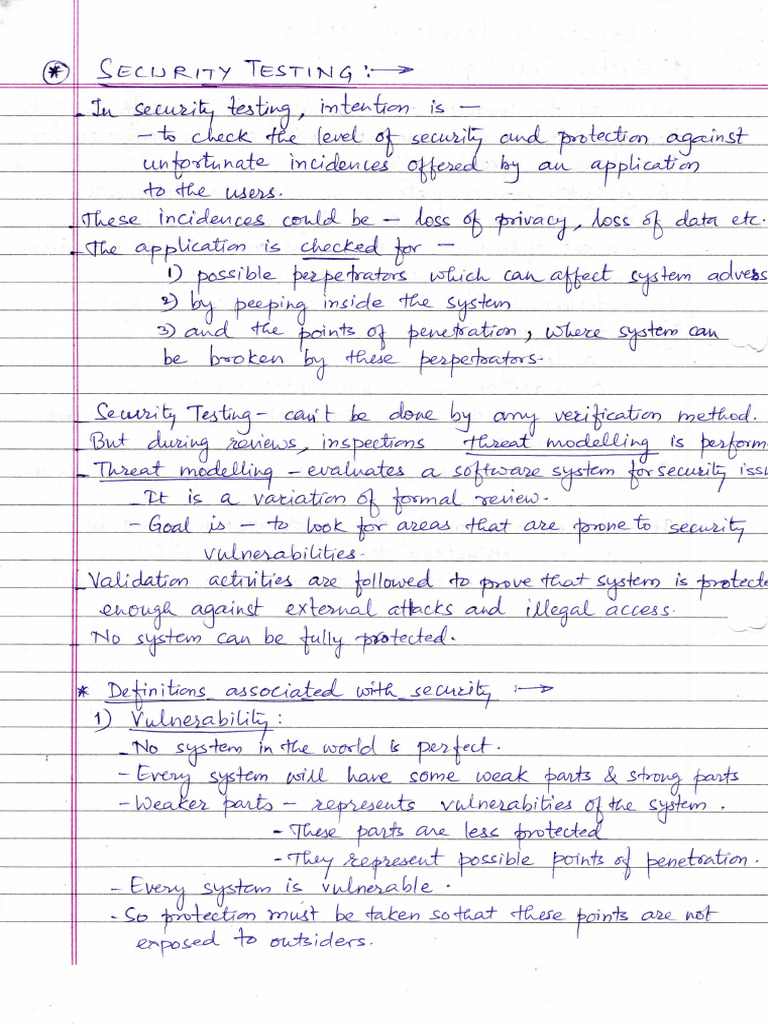 * SECURITY TESTING :→
- In security testing, intention is —
- to check the level of security and protection against
unfortunate incidences offered by an application
to the users.
- These incidences could be — loss of privacy, loss of data etc.
- The application is checked for —
1) possible perpetrators which can affect system advers
2) by peeping inside the system
3) and the points of penetration, where system can
be broken by these perpetrators.
- Security Testing - can't be done by any verification method.
- But during reviews, inspections threat modelling is perform
- Threat modelling - evaluates a software system for security issu
- It is a variation of formal review.
- Goal is - to look for areas that are prone to security
vulnerabilities.
- Validation activities are followed to prove that system is protecte
enough against external attacks and illegal access.
- No system can be fully protected.
* Definitions associated with security :→
1) Vulnerability :
- No system in the world is perfect.
- Every system will have some weak parts & strong parts
- Weaker parts - represents vulnerabities of the system.
- These parts are less protected
- They represent possible points of penetration.
- Every system is vulnerable.
- So protection must be taken so that these points are not
exposed to outsiders.